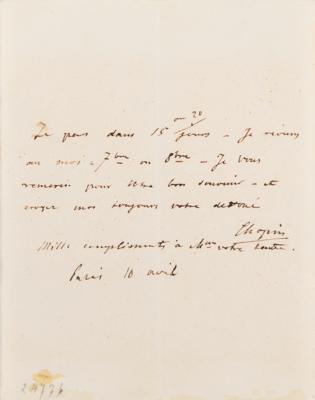 ou 20
Je pars dans 15 jours – Je reviens
au mois 7bre ou 8bre – Je vous
remercie pour votre bon souvenir – et
croyez moi toujours votre devoué
Chopin
Mille compliments à Mme votre tante.
Paris 10 avril